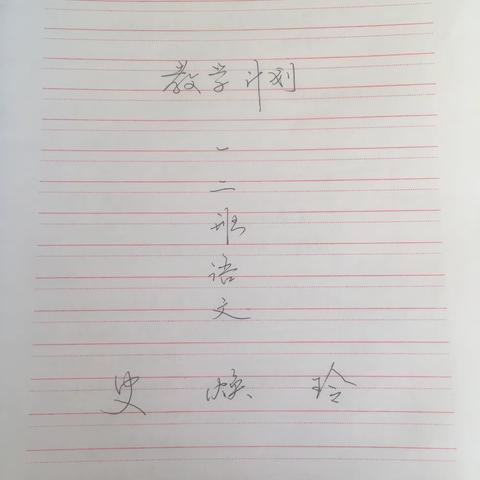 教学计划
一
二
班
语
文
史焕玲